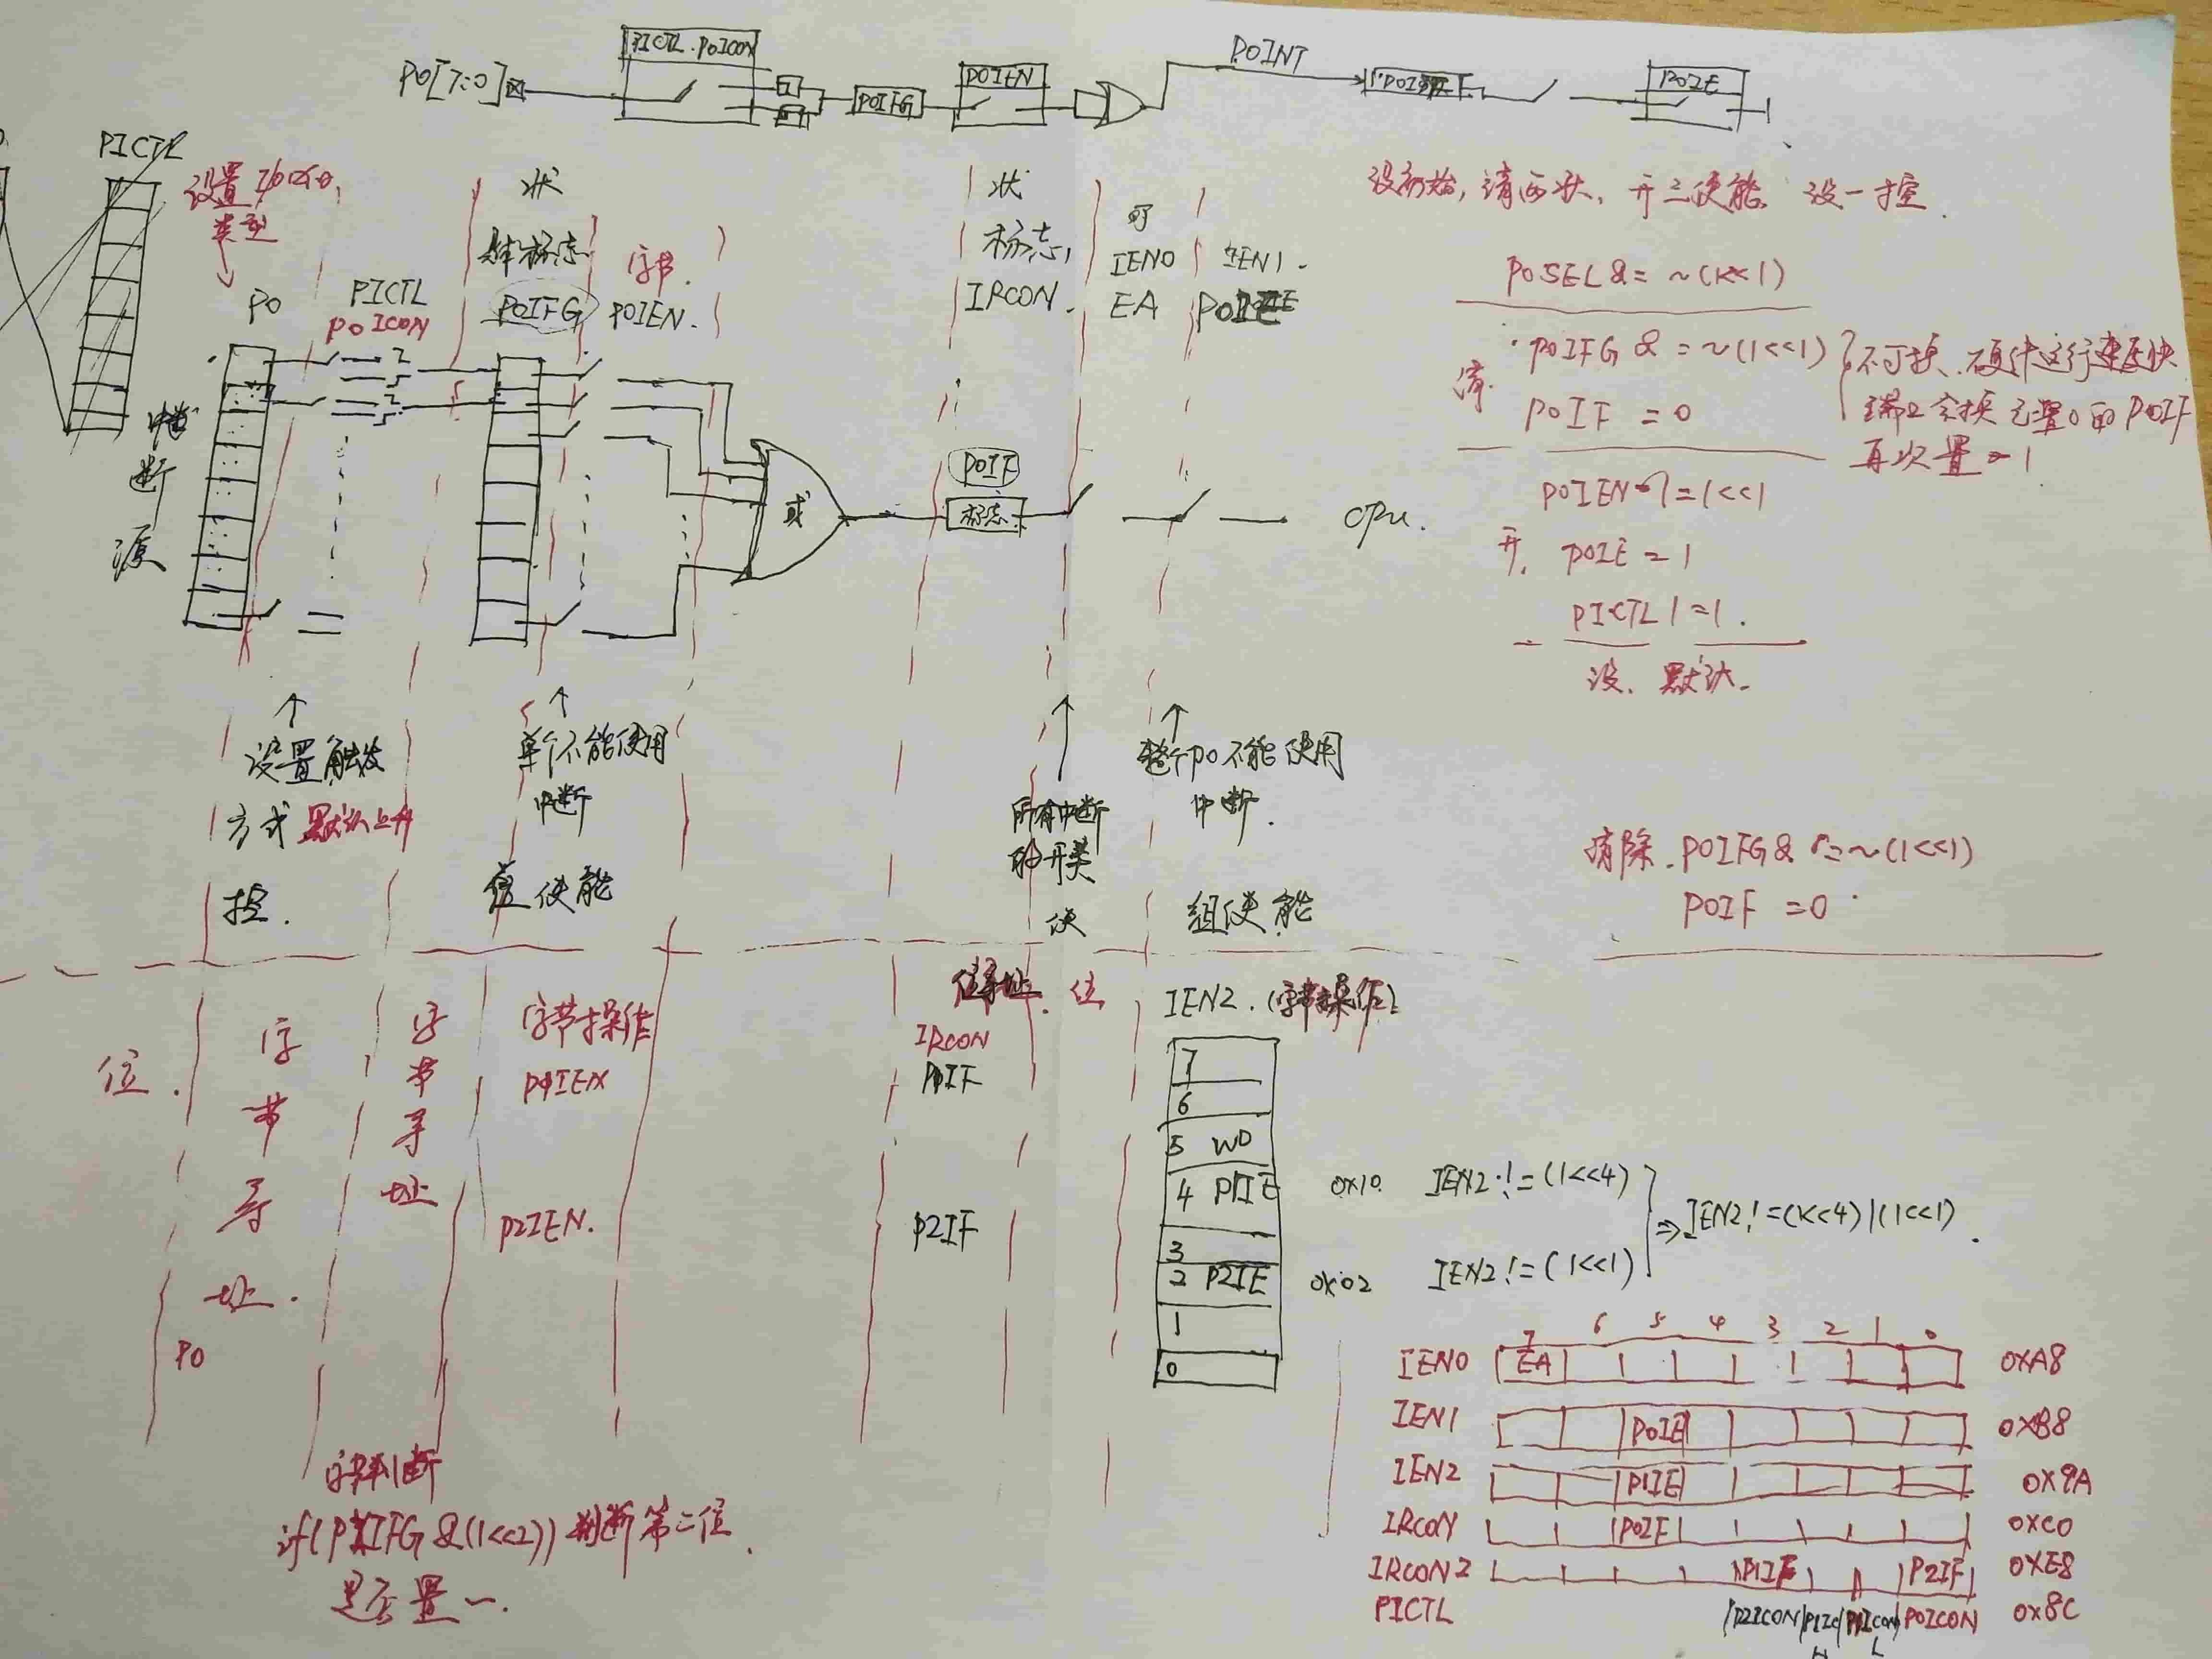 PICTL.P0ICON
P0[7:0]
P0IFG
P0IEN
P0INT
P0IE
PICTL
设置
类型
P0
PICTL
P0ICON
状
标志
P0IFG
字节.
P0IEN.
状
标志,
IRCON.
IEN0
EA
IEN1.
P0IE
中断源
或
P0IF
标志
CPU.
设初始, 清两状, 开三使能 设一控.
P0SEL &= ~(1<<1)
清.
P0IFG &= ~(1<<1)
P0IF = 0
不可换. 硬件运行速度快
再次置 1
开.
P0IEN |= 1<<1
P0IE = 1
PICTL |= 1.
设. 默认.
设置触发
方式 默认上升
控.
单个不能使用
中断
位使能
所有中断
开关
使
整个P0不能使用
中断.
组使能
清除. P0IFG &= ~(1<<1)
P0IF = 0
位.
字节寻址.
P0
字节寻址
字节操作
P1IEN
P2IEN.
位寻址. 位
IRCON
P1IF
P2IF
IEN2. (字节操作)
7
6
5 WD
4 P1IE
3
2 P2IE
1
0
0x10 IEN2 |= (1<<4)
0x02 IEN2 |= (1<<1)
⇒ IEN2 |= (1<<4)|(1<<1).
字节判断
判断第二位
是否置一.
7 6 5 4 3 2 1 0
IEN0 EA 0XA8
IEN1 P0IE 0XB8
IEN2 P1IE 0X9A
IRCON P0IF 0XC0
IRCON2 P1IF P2IF 0XE8
PICTL P2ICON P1ICON P0ICON 0x8C
H L